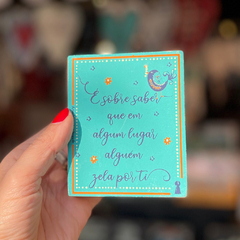 É sobre saber
que em
algum lugar
alguém
zela por ti